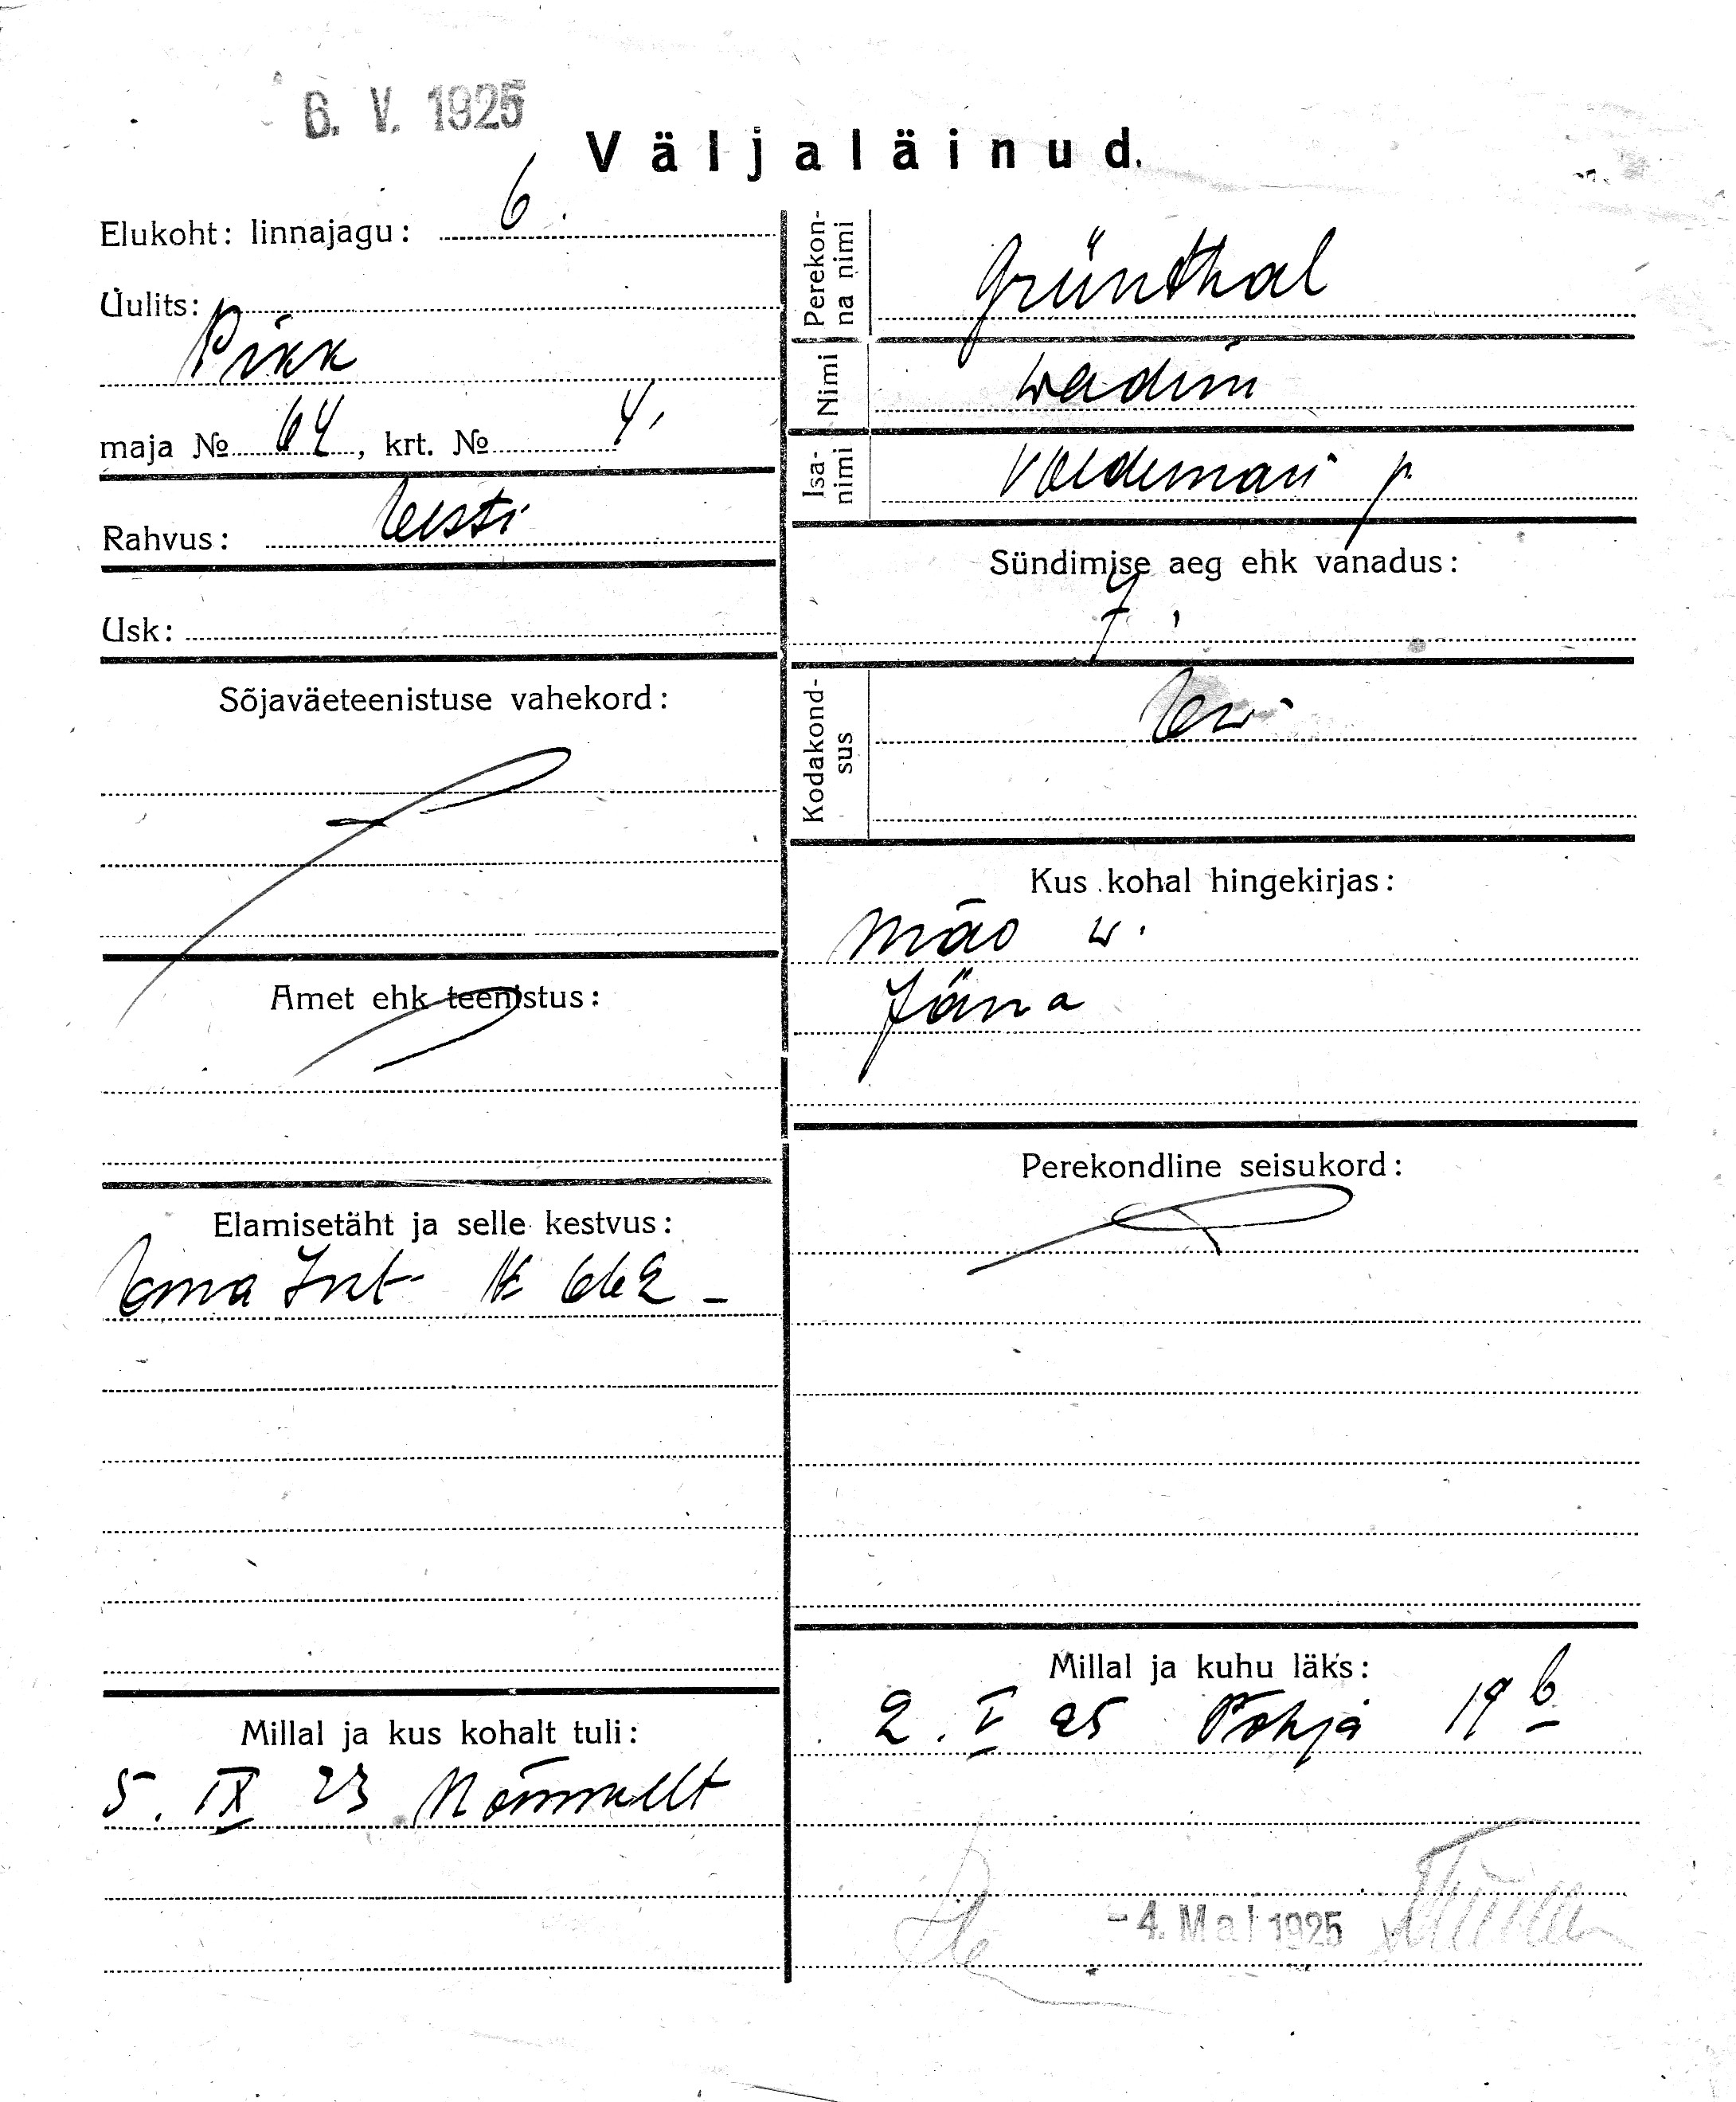 6. V. 1925
Väljaläinud.
Elukoht: linnajagu: 6.
Uulits:
Pikk
maja № 64, krt. № 4,
Rahvus: Eesti
Usk:
Sõjaväeteenistuse vahekord:
Amet ehk teenistus:
Elamisetäht ja selle kestvus:
Ema № 662 -
Millal ja kus kohalt tuli:
5. IX 23 Nõmmelt
Perekon-
na nimi
Grünthal
Nimi
Wadim
Isa-
nimi
Voldemari p.
Sündimise aeg ehk vanadus:
7.
Kodakond-
sus
Kus kohal hingekirjas:
Mäo w.
Järva
Perekondline seisukord:
Millal ja kuhu läks:
2. V 25 Põhja 19 b
-4. Mai 1925